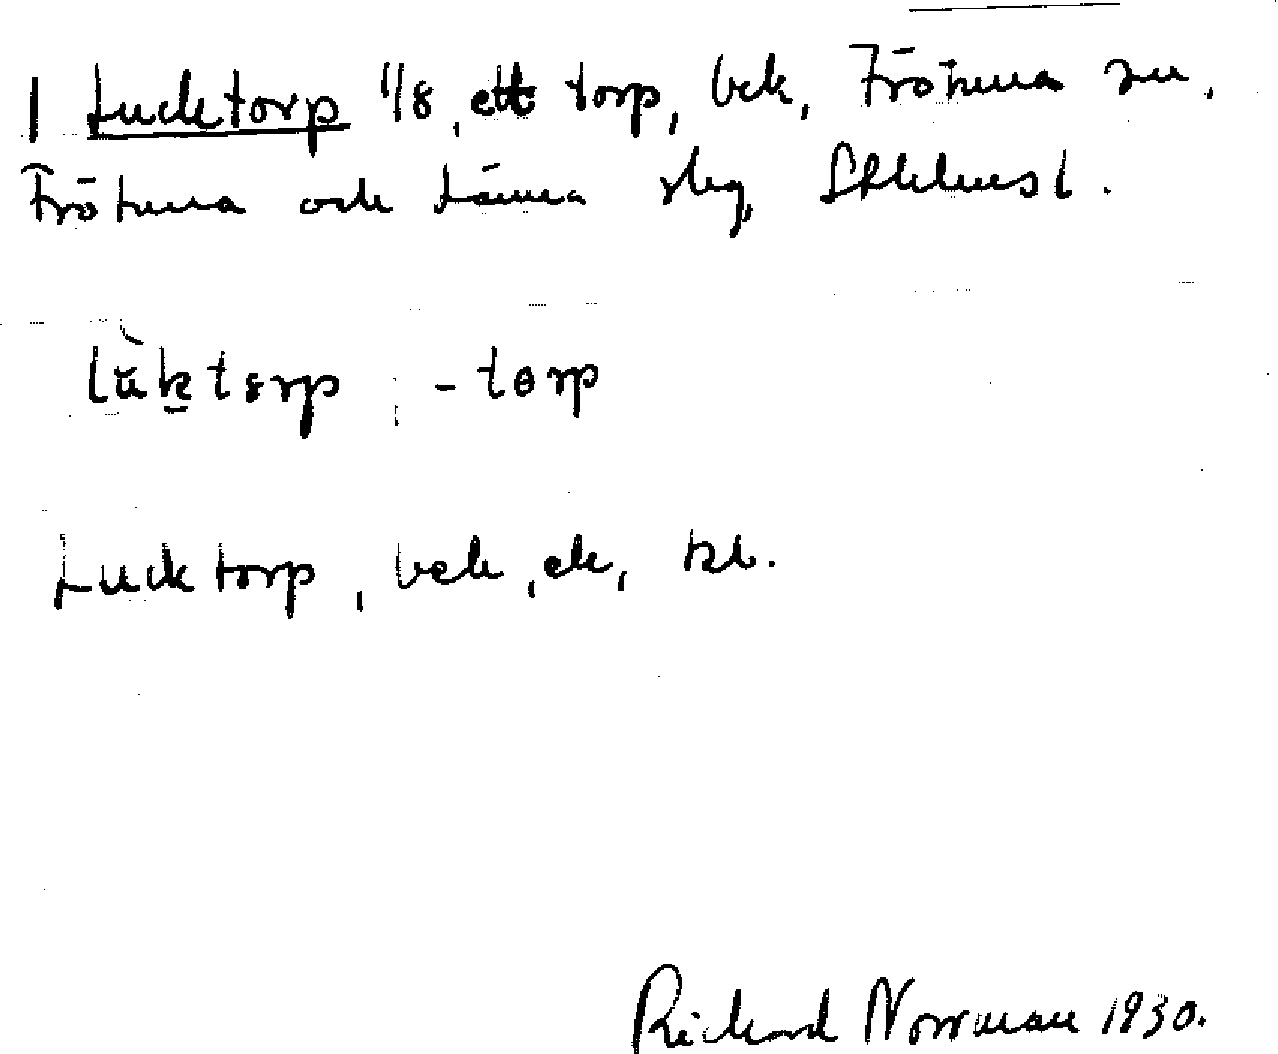 1 Lucktorp 1/8, ett torp, bek, Frötuna sn,
Frötuna och Länna slg, Sthlms l.
lùktorp ; -torp
Lucktorp, bek, ek,
Richard Norrman 1930.